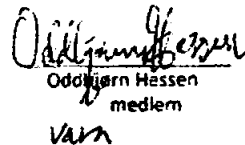 Oddbjørn Hessen
Oddbjørn Hessen
medlem
vara